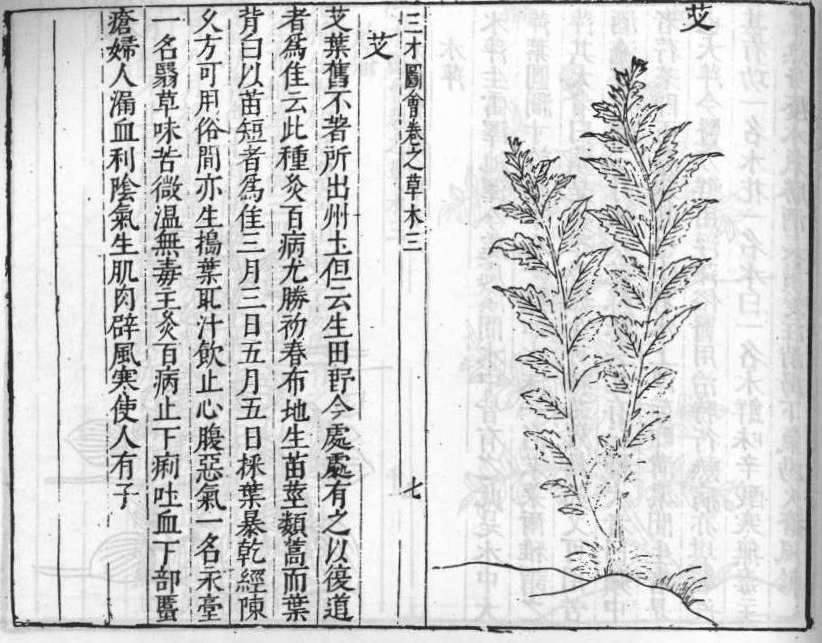 艾
三才圖會卷之草木三
七
艾
艾葉舊不著所出州土但云生田野今處處有之以復道
者爲佳云此種灸百病尤勝初春布地生苗莖類蒿而葉
背白以苗短者爲佳三月三日五月五日採葉暴乾經陳
久方可用俗間亦生搗葉取汁飲止心腹惡氣一名氷臺
一名醫草味苦微溫無毒主灸百病止下痢吐血下部䘌
瘡婦人漏血利陰氣生肌肉辟風寒使人有子